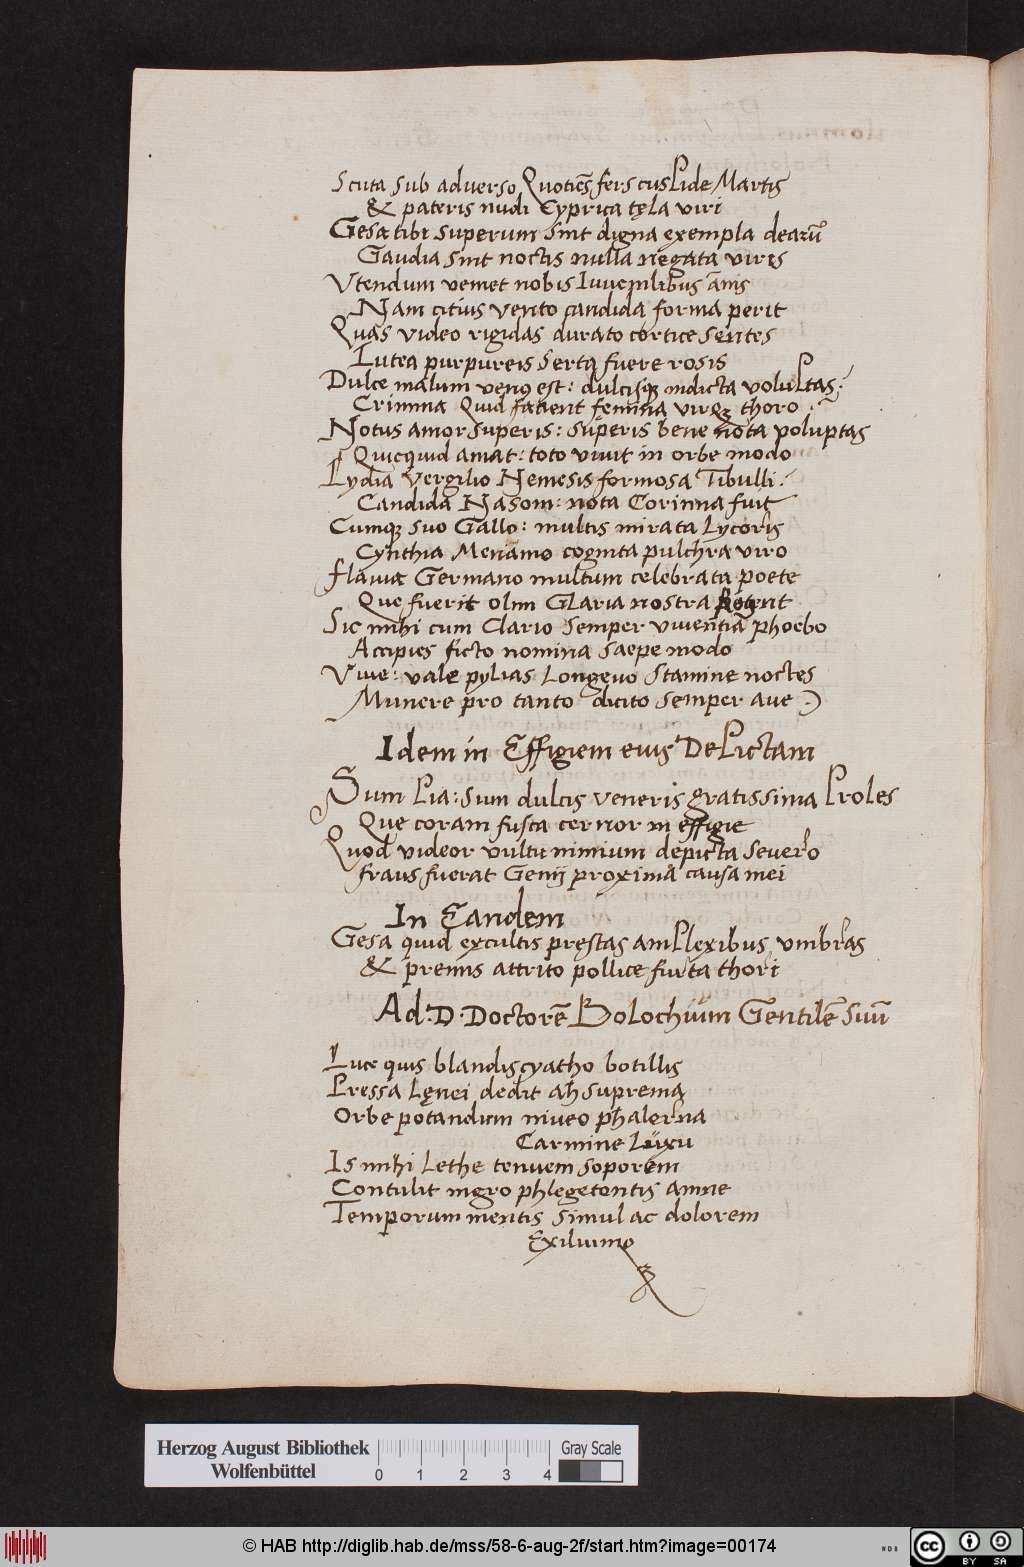 Scuta sub adverso Quotiēs fers cuspide Martis
& pateris nudi Cyprica tęla viri
Gesa tibi superum sint digna exempla dearū
Gaudia sint noctis nulla negata viris
Vtendum uemet nobis Iuuenilibus ānis
Nam citius vento candida forma perit
Quas video rigidas durato cortice sentes
Lutea purpureis serta fuere rosis
Dulce malum venus est: dulcisque indicta voluptas:
Crimina Quid facient femina virque thoro
Notus amor superis: superis bene nota voluptas
Quicquid amat: toto viuit in orbe modo
Lydia Vergilio Nemesis formosa Tibulli:
Candida Nasoni: nota Corinna fuit
Cumque suo Gallo: multis mirata Lycoris
Cynthia Menāmo cognita pulchra viro
flauia Germano multum celebrata poete
Que fuerit olim Glaria nostra petent
Sic mihi cum Clario semper viuentia phoebo
Accipies ficto nomina saepe modo
Viue: vale pylias Longeuo Stamine noctes
Munere pro tanto dicito semper aue
Idem in Effigiem eius Depictam
Sum Pia: sum dulcis veneris gratissima Proles
Que coram fusca cernor in effigie
Quod videor vultu nimium depicta seuero
fraus fuerat Genij proxima causa mei
In Eandem
Gesa quid excultis pręstas amplexibus vmbras
& premis attrito pollice furta thori
Ad. D. Doctorē Bolochium Gentilē suū
Luce quis blandis cyatho botillis
Pressa Lęnei dedit ah suprema
Orbe potandum niueo phalerna
Carmine Luxu
Is mihi Lethe tenuem soporem
Contulit nigro phlegetontis amne
Temporum mentis simul ac dolorem
Exiluimo
Herzog August Bibliothek
Wolfenbüttel
0 1 2 3 4
Gray Scale
© HAB http://diglib.hab.de/mss/58-6-aug-2f/start.htm?image=00174
cc BY SA